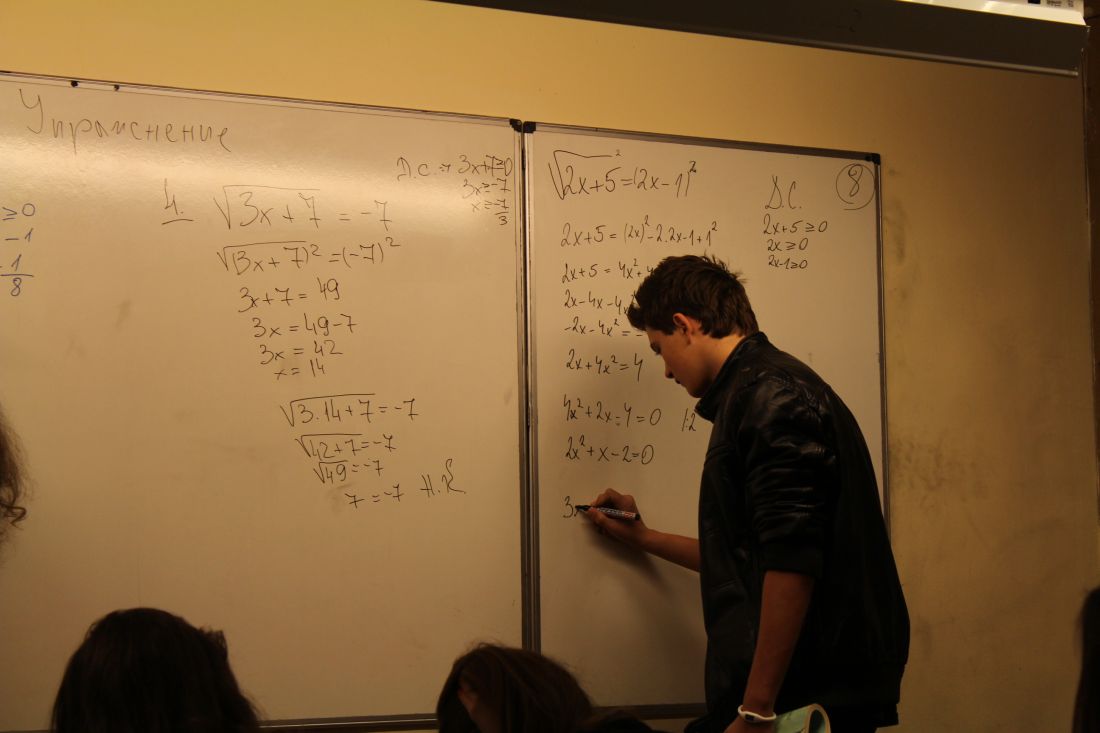 Упражнение
≥0
-1
1
8
Д.С. → 3x+7≥0
3x≥-7
x≥-7/3
4. √3x+7 = -7
√(3x+7)² = (-7)²
3x+7 = 49
3x = 49-7
3x = 42
x = 14
√3.14+7 = -7
√42+7 = -7
√49 = -7
7 = -7 Н.К
√2x+5² = (2x-1)²
8
Д.С.
2x+5≥0
2x≥0
2x-1≥0
2x+5 = (2x)²-2.2x-1+1²
2x+5 = 4x²+
2x-4x-4x²
-2x-4x² = -
2x+4x² = 4
4x²+2x-4=0 |:2
2x²+x-2=0
3x